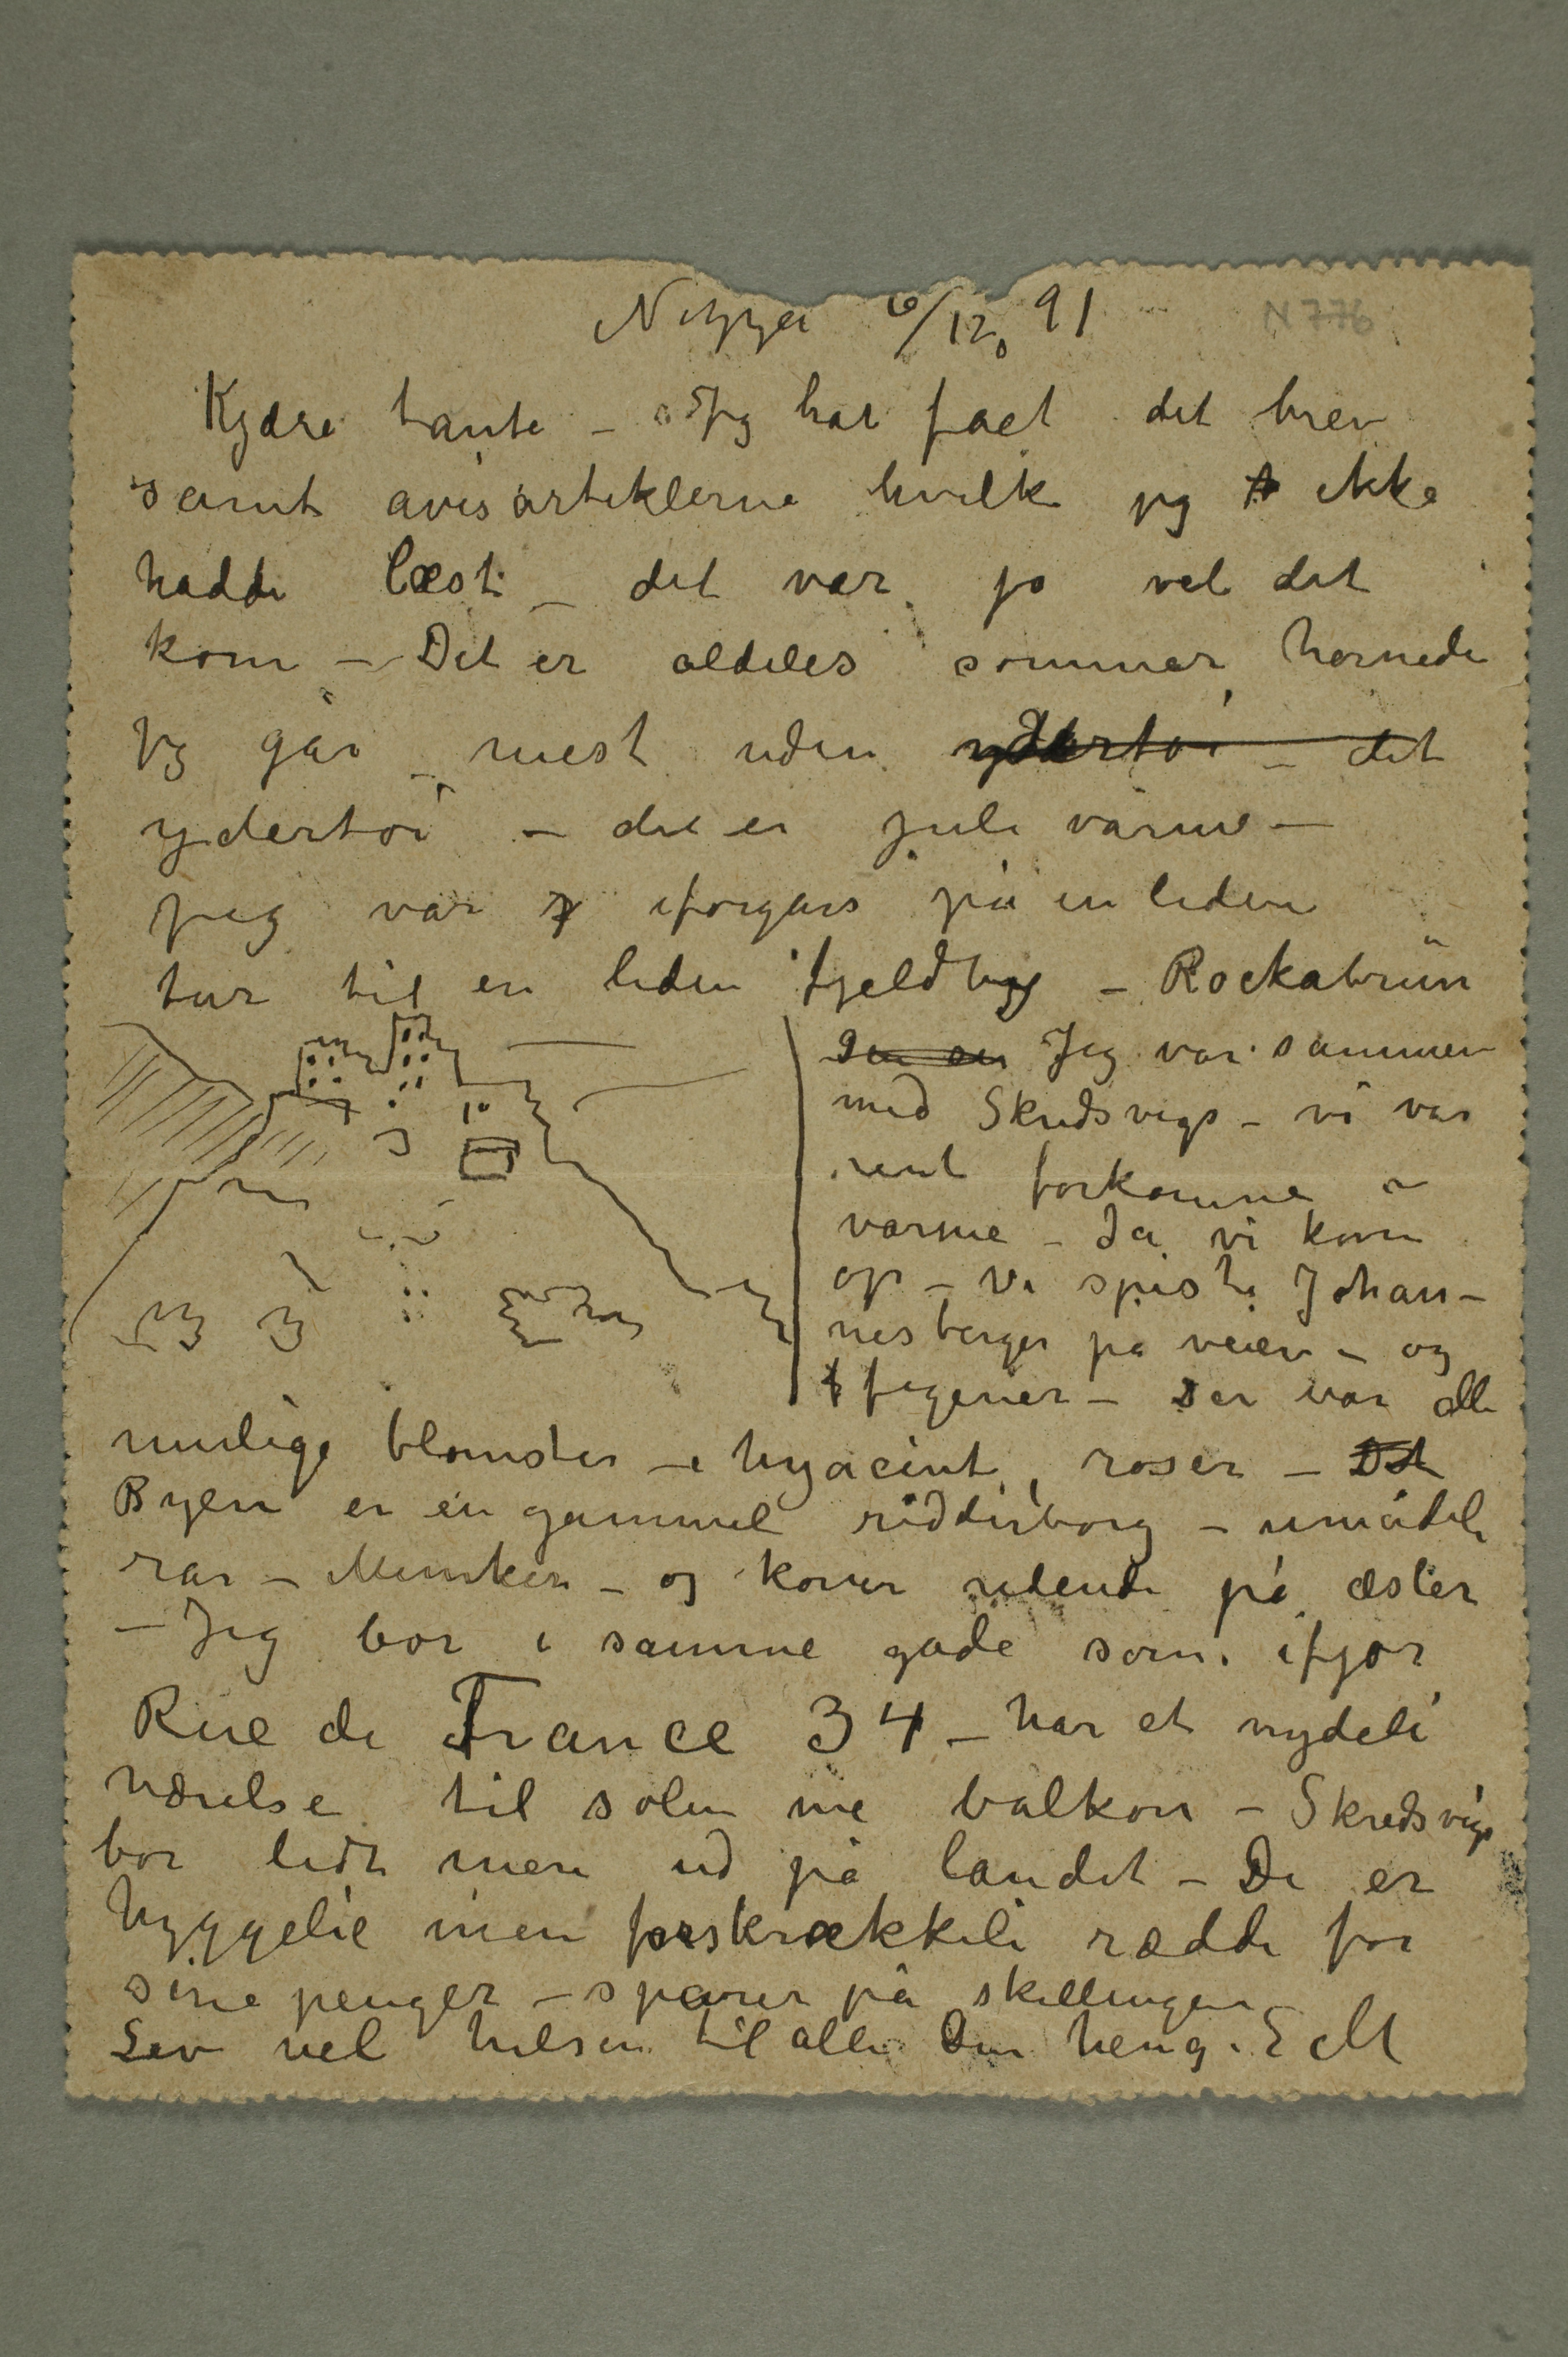 Nizza 6/12 91
N 776
Kjære tante – Jeg har fået dit brev
samt avisartiklerne hvilke jeg ikke
hadde læst – det var jo vel det
kom – Det er aldeles sommer hernede
Jeg går mest uden ydertøi – det
ydertøi – det er juli varme –
Jeg var iforgårs på en liden
tur til en liden fjeldby – Rockabrün
Den er Jeg var sammen
med Skredsvigs – vi var
rent forkomne a
varme – Da vi kom
op – Vi spiste Johan-
nesbergen på veien – og
figener – Der var alle
mulige blomster – hyacint, roser – Det
Byen er en gammel ridderborg – umådeli
rar – Munker – og koner ridende på æsler
– Jeg bor i samme gade som ifjor
Rue de France 34 – har et nydeli
værelse til solen me balkon – Skredsvigs
bor lidt mere ud på landet – De er
hyggelie men forskrækkeli rædde for
sine penger – sparer på skillingen
Lev vel hilsen til alle Din heng. E M